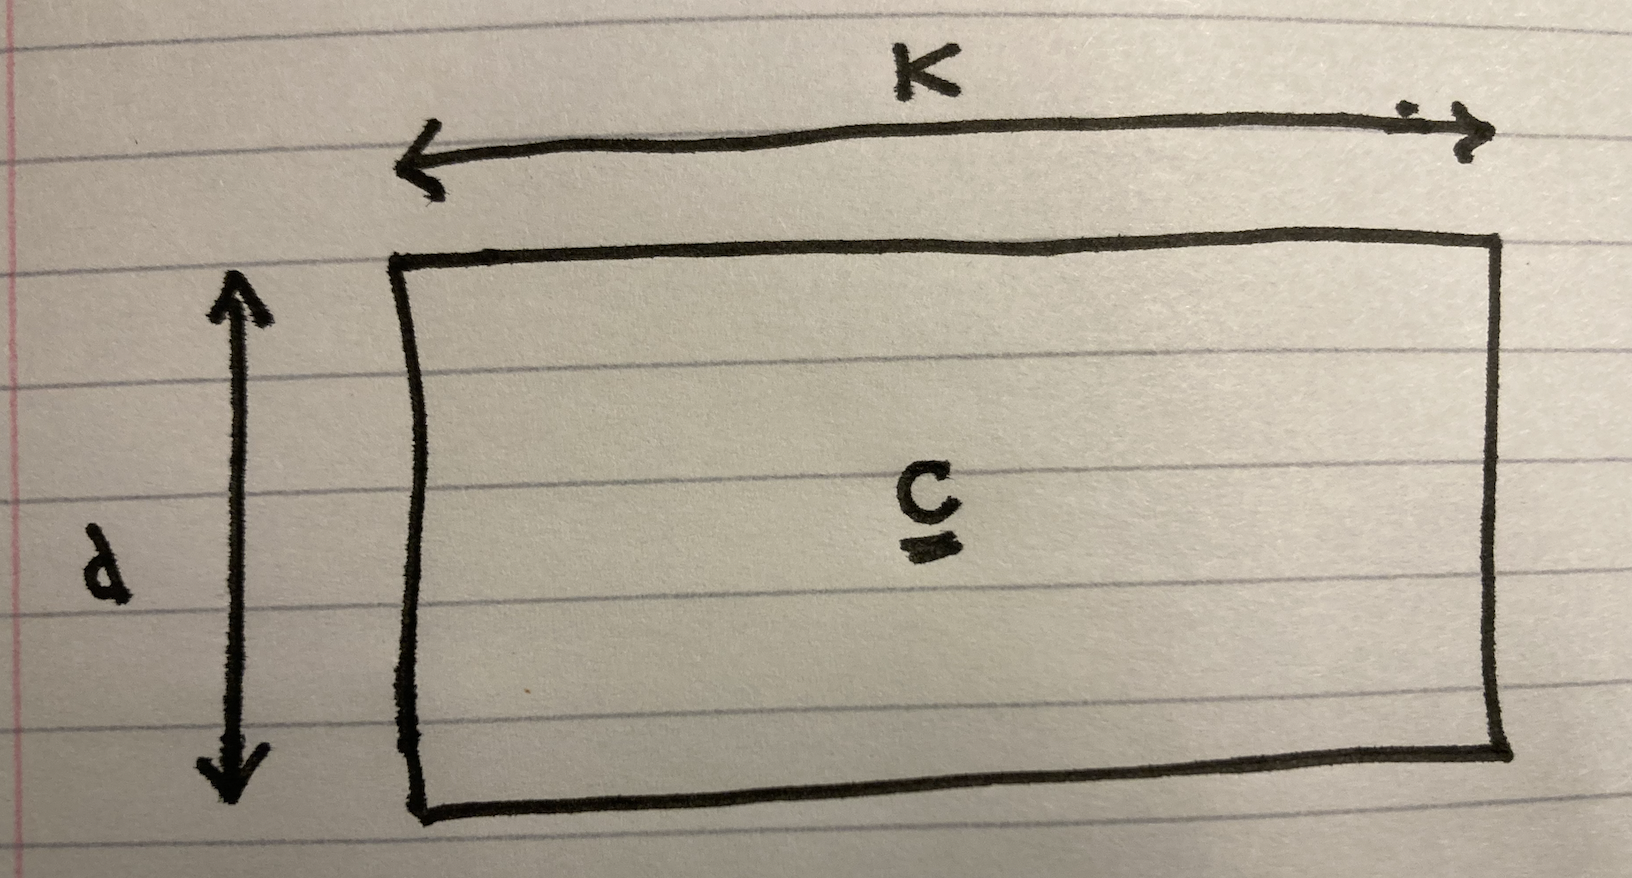 K
d
C